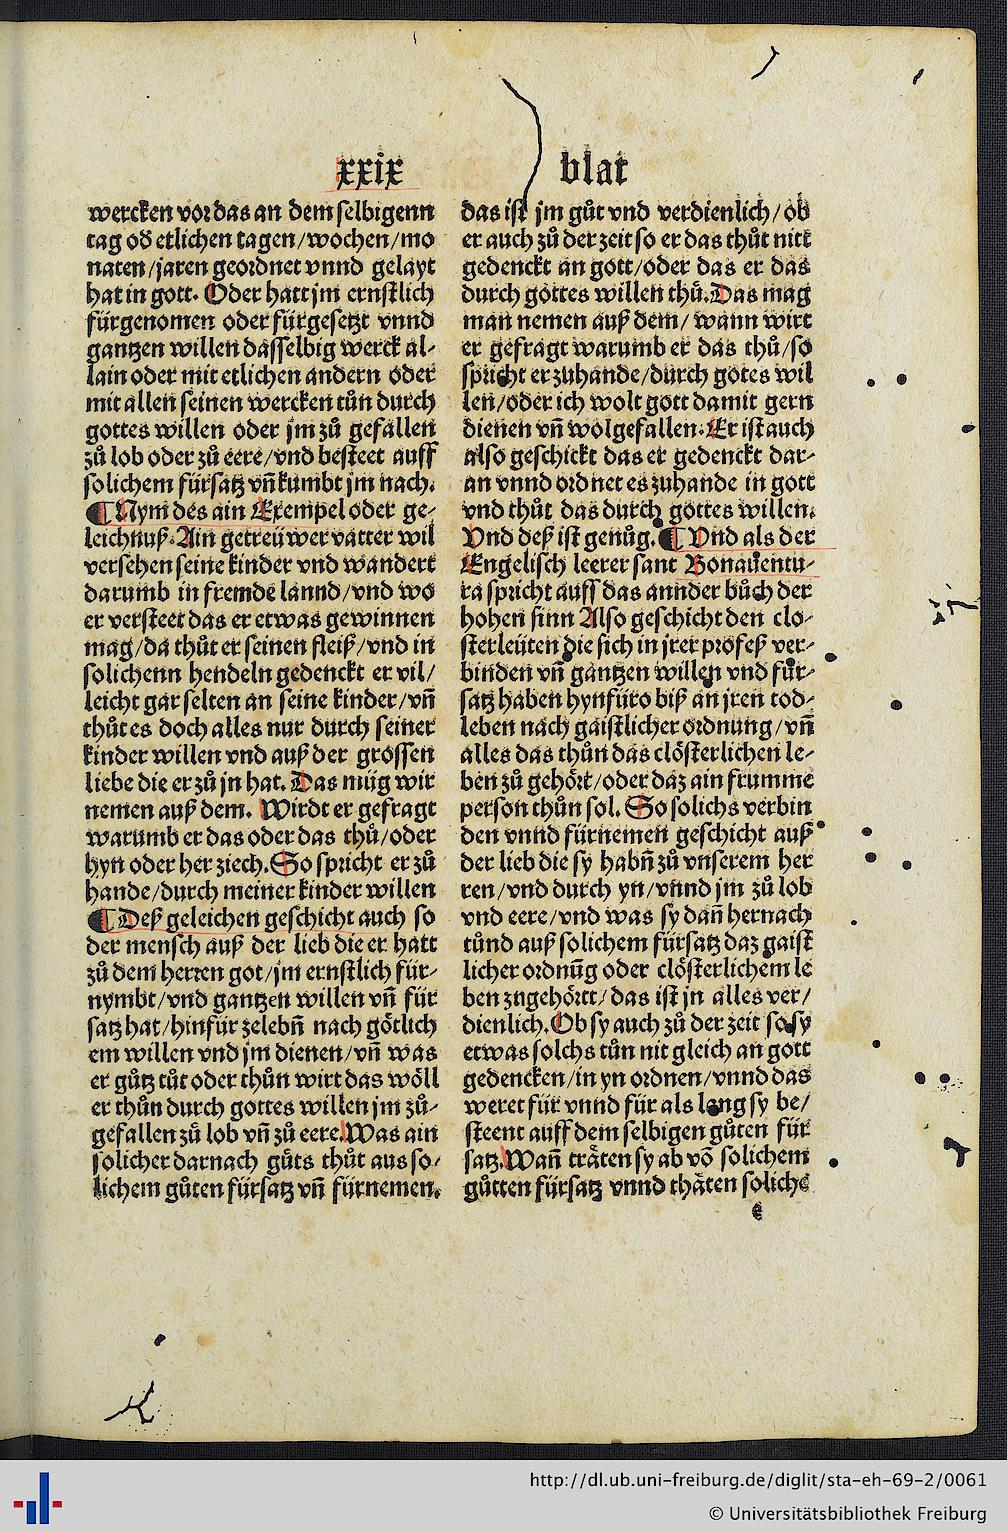 xxix blat
wercken vor das an dem selbigenn
tag od̕ etlichen tagen/wochen/mo
naten/jaren geordnet vnnd gelayt
hat in gott. Oder hatt jm ernstlich
fürgenomen oder fürgesetzt vnnd
gantzen willen dasselbig werck al-
lain oder mit etlichen andern oder
mit allen seinen wercken tůn durch
gottes willen oder jm zů gefallen
zů lob oder zů eere/vnd besteet auff
solichem fürsatz vn̄ kumbt jm nach.
¶ Nym des ain Exempel oder ge-
leichnuß. Ain getreüwer vatter wil
versehen seine kinder vnd wandert
darumb in fremde lannd/vnd wo
er versteet das er etwas gewinnen
mag/da thůt er seinen fleiß/vnd in
solichenn hendeln gedenckt er vil/
leicht gar selten an seine kinder/vn̄
thůt es doch alles nur durch seiner
kinder willen vnd auß der grossen
liebe die er zů jn hat. Das müg wir
nemen auß dem. Wirdt er gefragt
warumb er das oder das thů/oder
hyn oder her ziech. So spricht er zů
hande/durch meiner kinder willen
¶ Deß geleichen geschicht auch so
der mensch auß der lieb die er hatt
zů dem herren got/jm ernstlich für-
nymbt/vnd gantzen willen vn̄ für
satz hat/hinfür zelebn̄ nach götlich
em willen vnd jm dienen/vn̄ was
er gůtz tůt oder thůn wirt das wöll
er thůn durch gottes willen jm zů-
gefallen zů lob vn̄ zů eere. Was ain
solicher darnach gůts thůt aus so-
lichem gůten fürsatz vn̄ fürnemen.
das ist jm gůt vnd verdienlich/ob
er auch zů der zeit so er das thůt nitt
gedenckt an gott/oder das er das
durch gottes willen thů. Das mag
man nemen auß dem/wann wirt
er gefragt warumb er das thů/so
spricht er zuhande/durch gotes wil
len/oder ich wolt gott damit gern
dienen vn̄ wolgefallen. Er ist auch
also geschickt das er gedenckt dar-
an vnnd ordnet es zuhande in gott
vnd thůt das durch gottes willen.
Vnd deß ist genůg. ¶ Vnd als der
Engelisch leerer sant Bonauentu-
ra spricht auff das annder bůch der
hohen sinn Also geschicht den clo-
sterleüten die sich in jrer profeß ver-
binden vn̄ gantzen willen vnd für-
satz haben hynfüro biß an jren tod-
leben nach gaistlicher ordnung/vn̄
alles das thůn das clösterlichen le-
ben zů gehört/oder daz ain frumme
person thůn sol. So solichs verbin
den vnnd fürnemen geschicht auß
der lieb die sy habn̄ zů vnserem her
ren/vnd durch yn/vnnd jm zů lob
vnd eere/vnd was sy dan̄ hernach
tůnd auß solichem fürsatz daz gaist
licher ordnūg oder clösterlichem le
ben zugehörtt/das ist jn alles ver/
dienlich. Ob sy auch zů der zeit so sy
etwas solchs tůn nit gleich an gott
gedencken/in yn ordnen/vnnd das
weret für vnnd für als lang sy be/
steent auff dem selbigen gůten für
satz. Wan̄ träten sy ab vō solichem
gůtten fürsatz vnnd thäten soliche
e
http://dl.ub.uni-freiburg.de/diglit/sta-eh-69-2/0061
© Universitätsbibliothek Freiburg